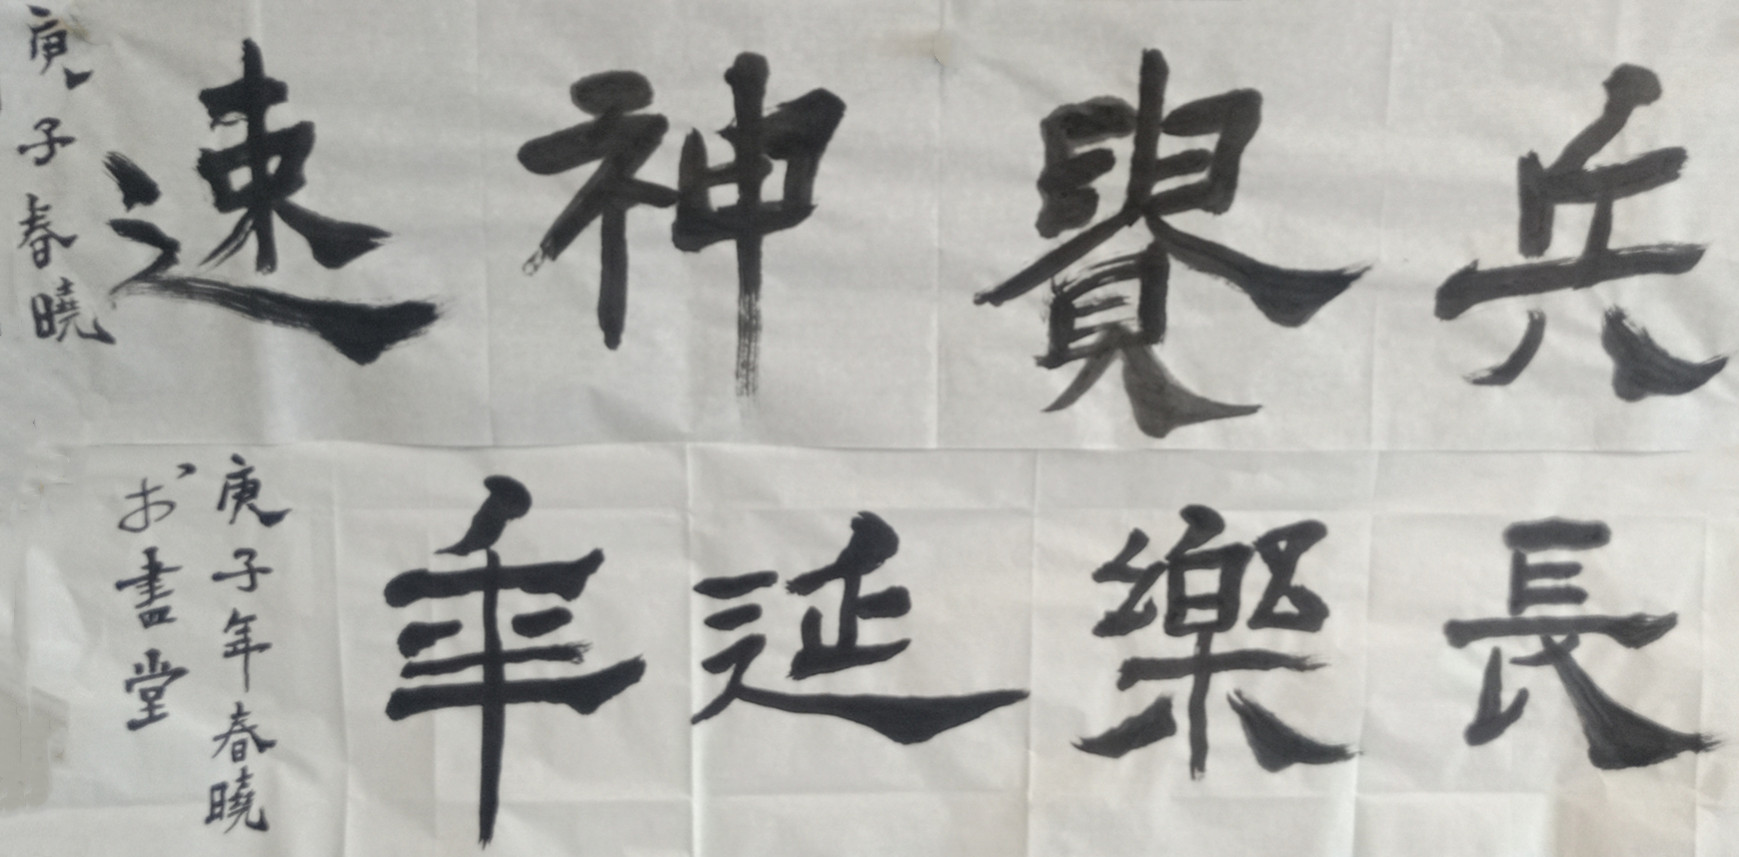 兵貴神速
庚子春曉
長樂延年
庚子年春曉
於書堂